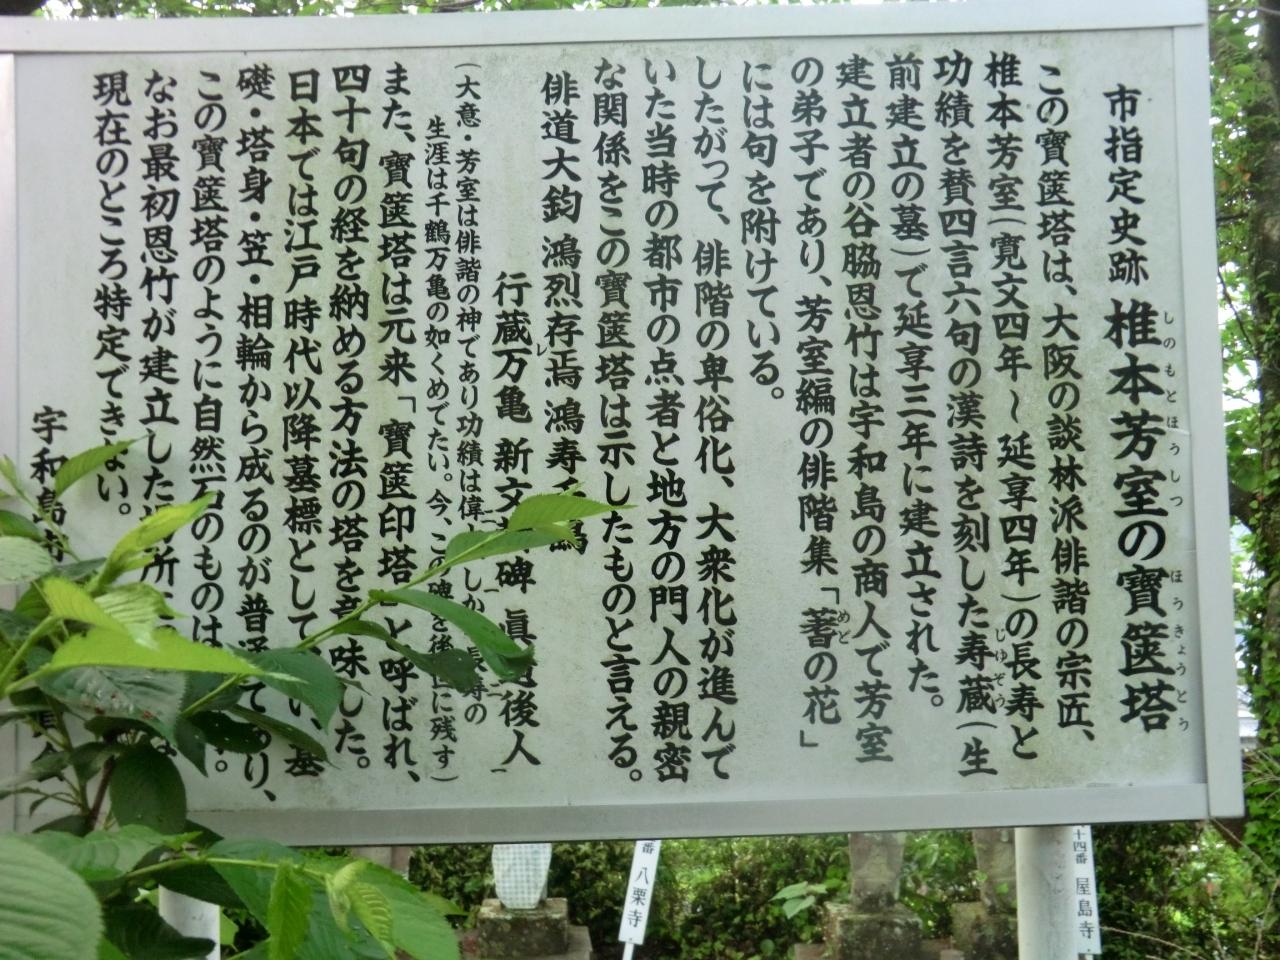 市指定史跡 椎本芳室の寶篋塔
しのもとほうしつ ほうきょうとう
この寶篋塔は、大阪の談林派俳諧の宗匠、
椎本芳室(寛文四年～延享四年)の長寿と
功績を賛四言六句の漢詩を刻した寿蔵(生
じゆぞう
前建立の墓)で延享三年に建立された。
建立者の谷脇恩竹は宇和島の商人で芳室
の弟子であり、芳室編の俳階集「蓍の花」
めど
には句を附けている。
したがって、俳階の卑俗化、大衆化が進んで
いた当時の都市の点者と地方の門人の親密
な関係をこの寶篋塔は示したものと言える。
俳道大鈞 鴻烈存焉 鴻寿千
レ
行蔵万亀 新文 碑 眞 後人
(大意・芳室は俳諧の神であり功績は偉 しか 長寿の
生涯は千鶴万亀の如くめでたい。今、この碑を後世に残す)
また、寶篋塔は元来「寶篋印塔」と呼ばれ、
四十句の経を納める方法の塔を意味した。
日本では江戸時代以降墓標として い、基
礎・塔身・笠・相輪から成るのが普通であり、
この寶篋塔のように自然石のものは
なお最初恩竹が建立した場所
現在のところ特定できない。
宇和島市
番 八栗寺
十四番 屋島寺